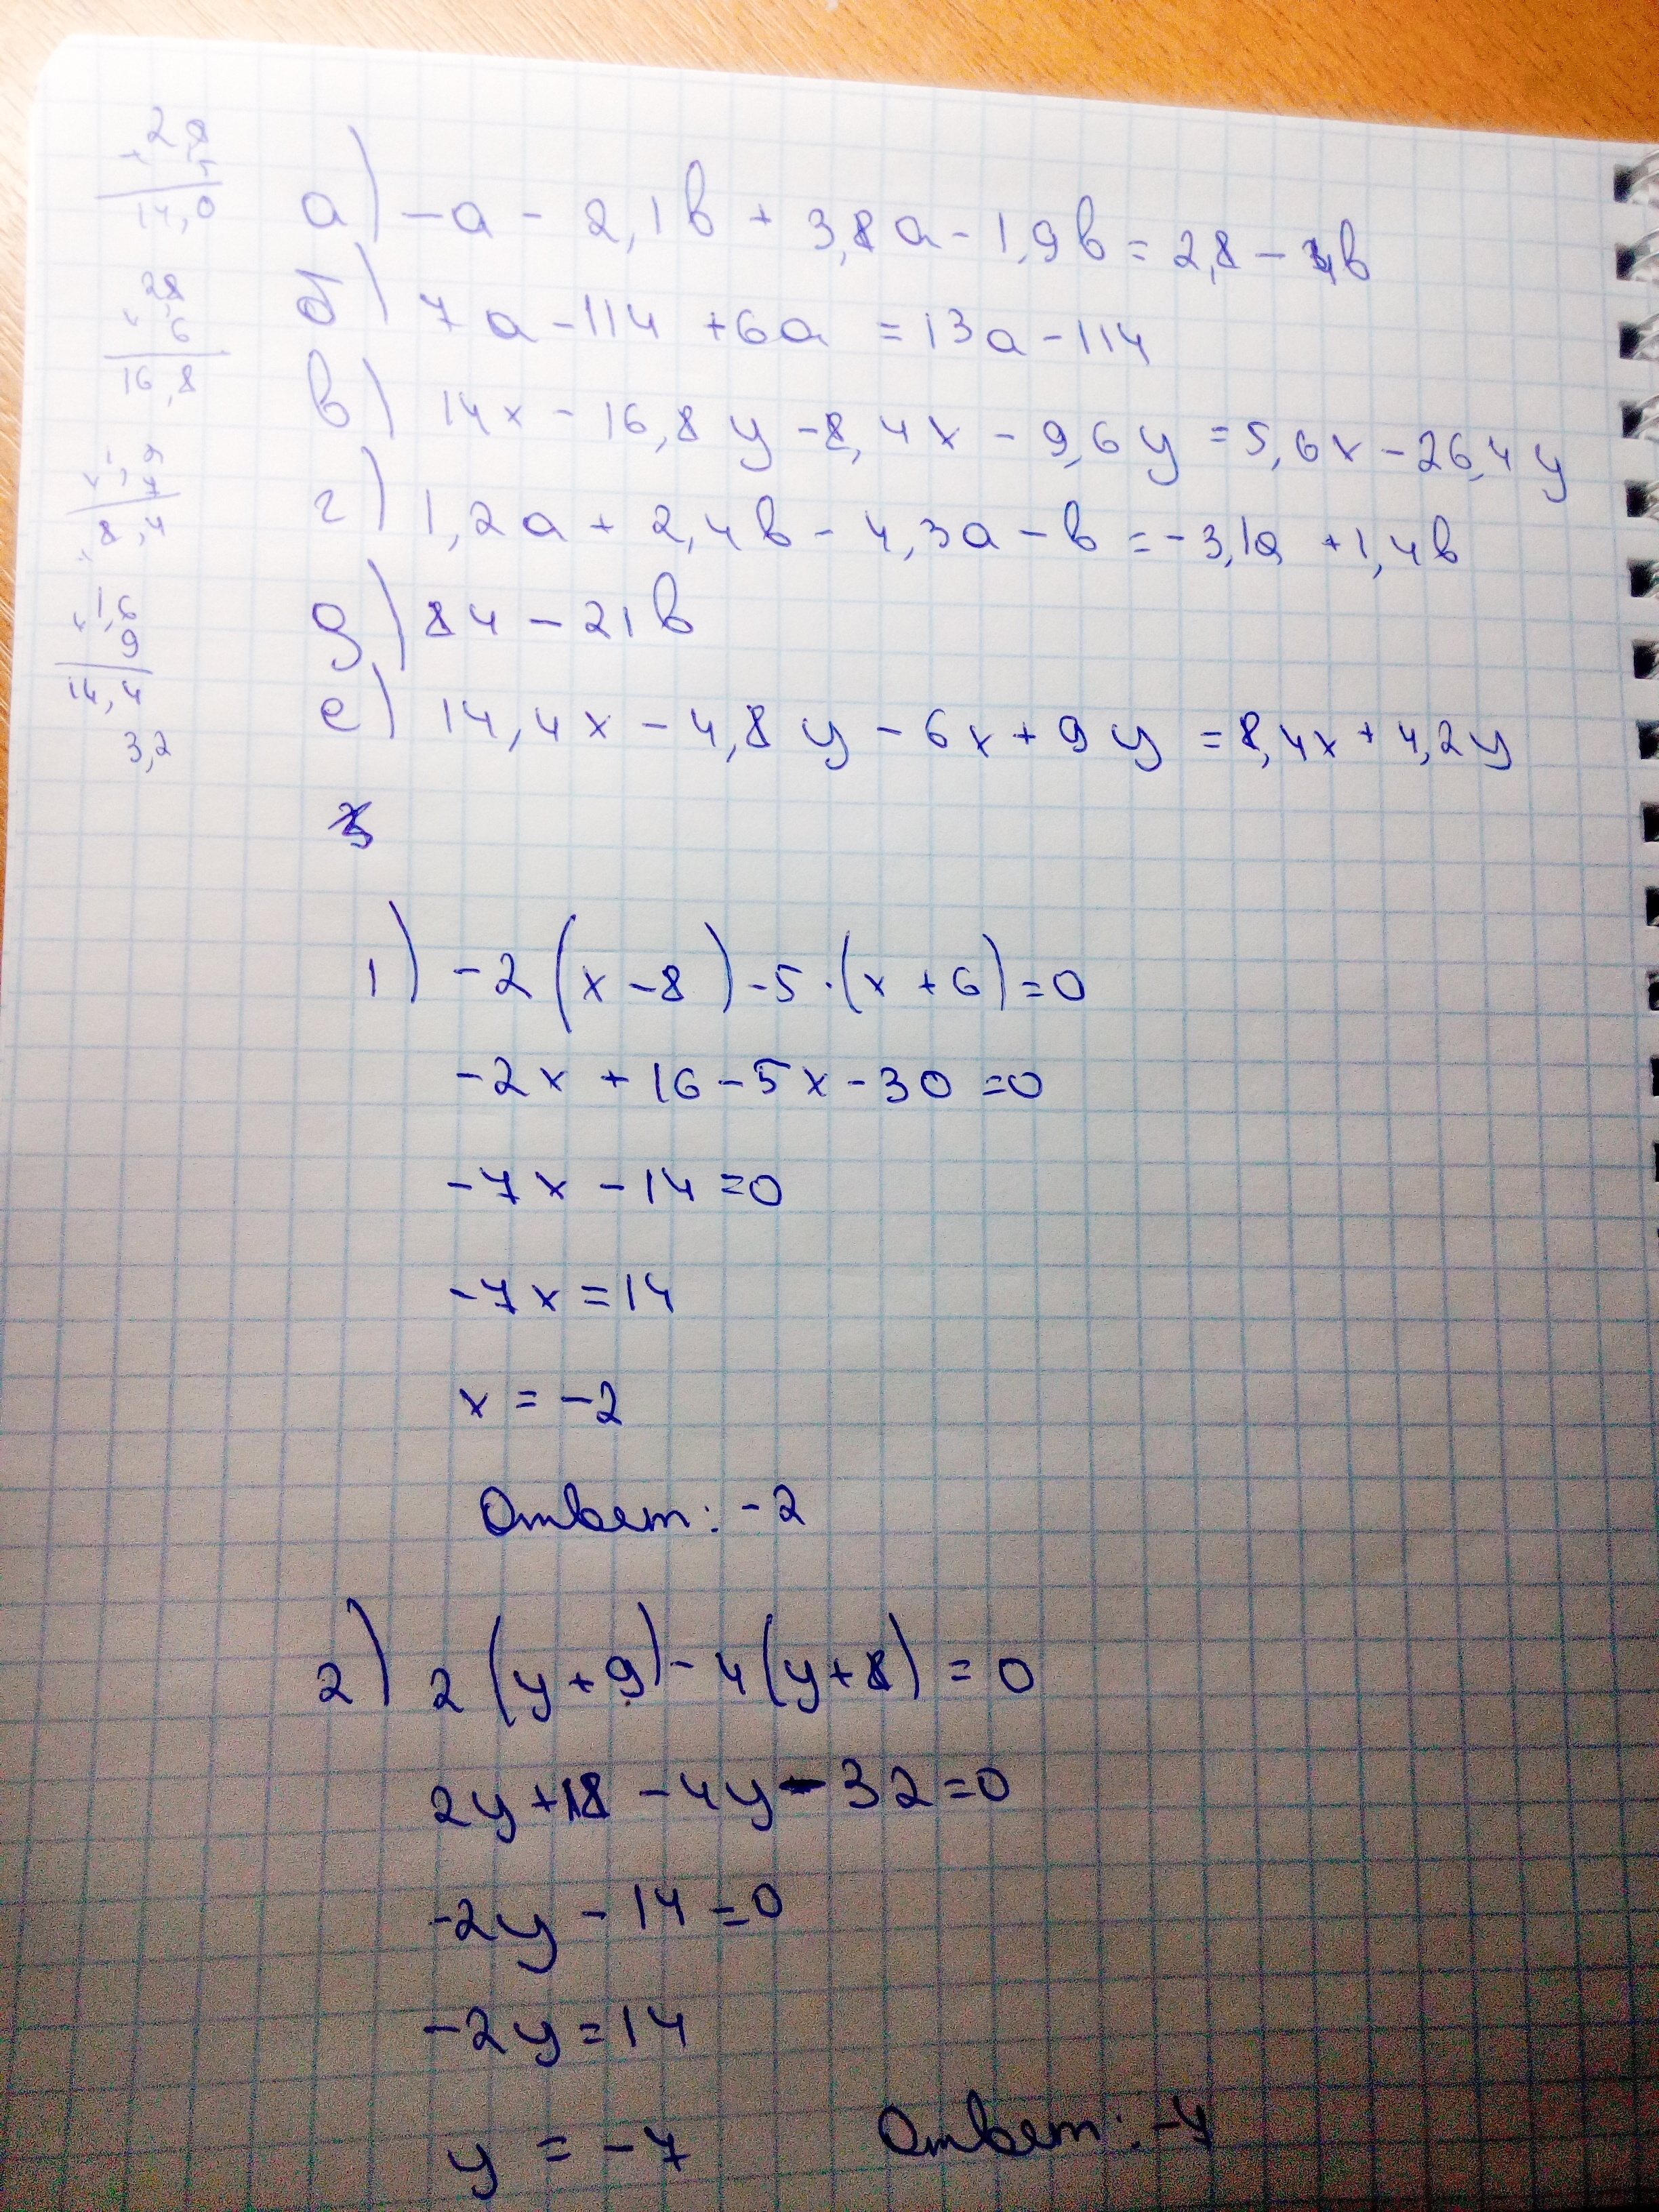 28
× 5
14,0
а) -a - 2,1b + 3,8a - 1,9b = 2,8 - 4b
2,8
× 6
16,8
б) 7a - 114 + 6a = 13a - 114
в) 14x - 16,8y - 8,4x - 9,6y = 5,6x - 26,4y
8,4
г) 1,2a + 2,4b - 4,3a - b = -3,1a + 1,4b
× 1,6
9
14,4
3,2
д) 84 - 21b
е) 14,4x - 4,8y - 6x + 9y = 8,4x + 4,2y
1) -2(x - 8) - 5·(x + 6) = 0
-2x + 16 - 5x - 30 = 0
-7x - 14 = 0
-7x = 14
x = -2
Ответ: -2
2) 2(y + 9) - 4(y + 8) = 0
2y + 18 - 4y - 32 = 0
-2y - 14 = 0
-2y = 14
y = -7 Ответ: -7